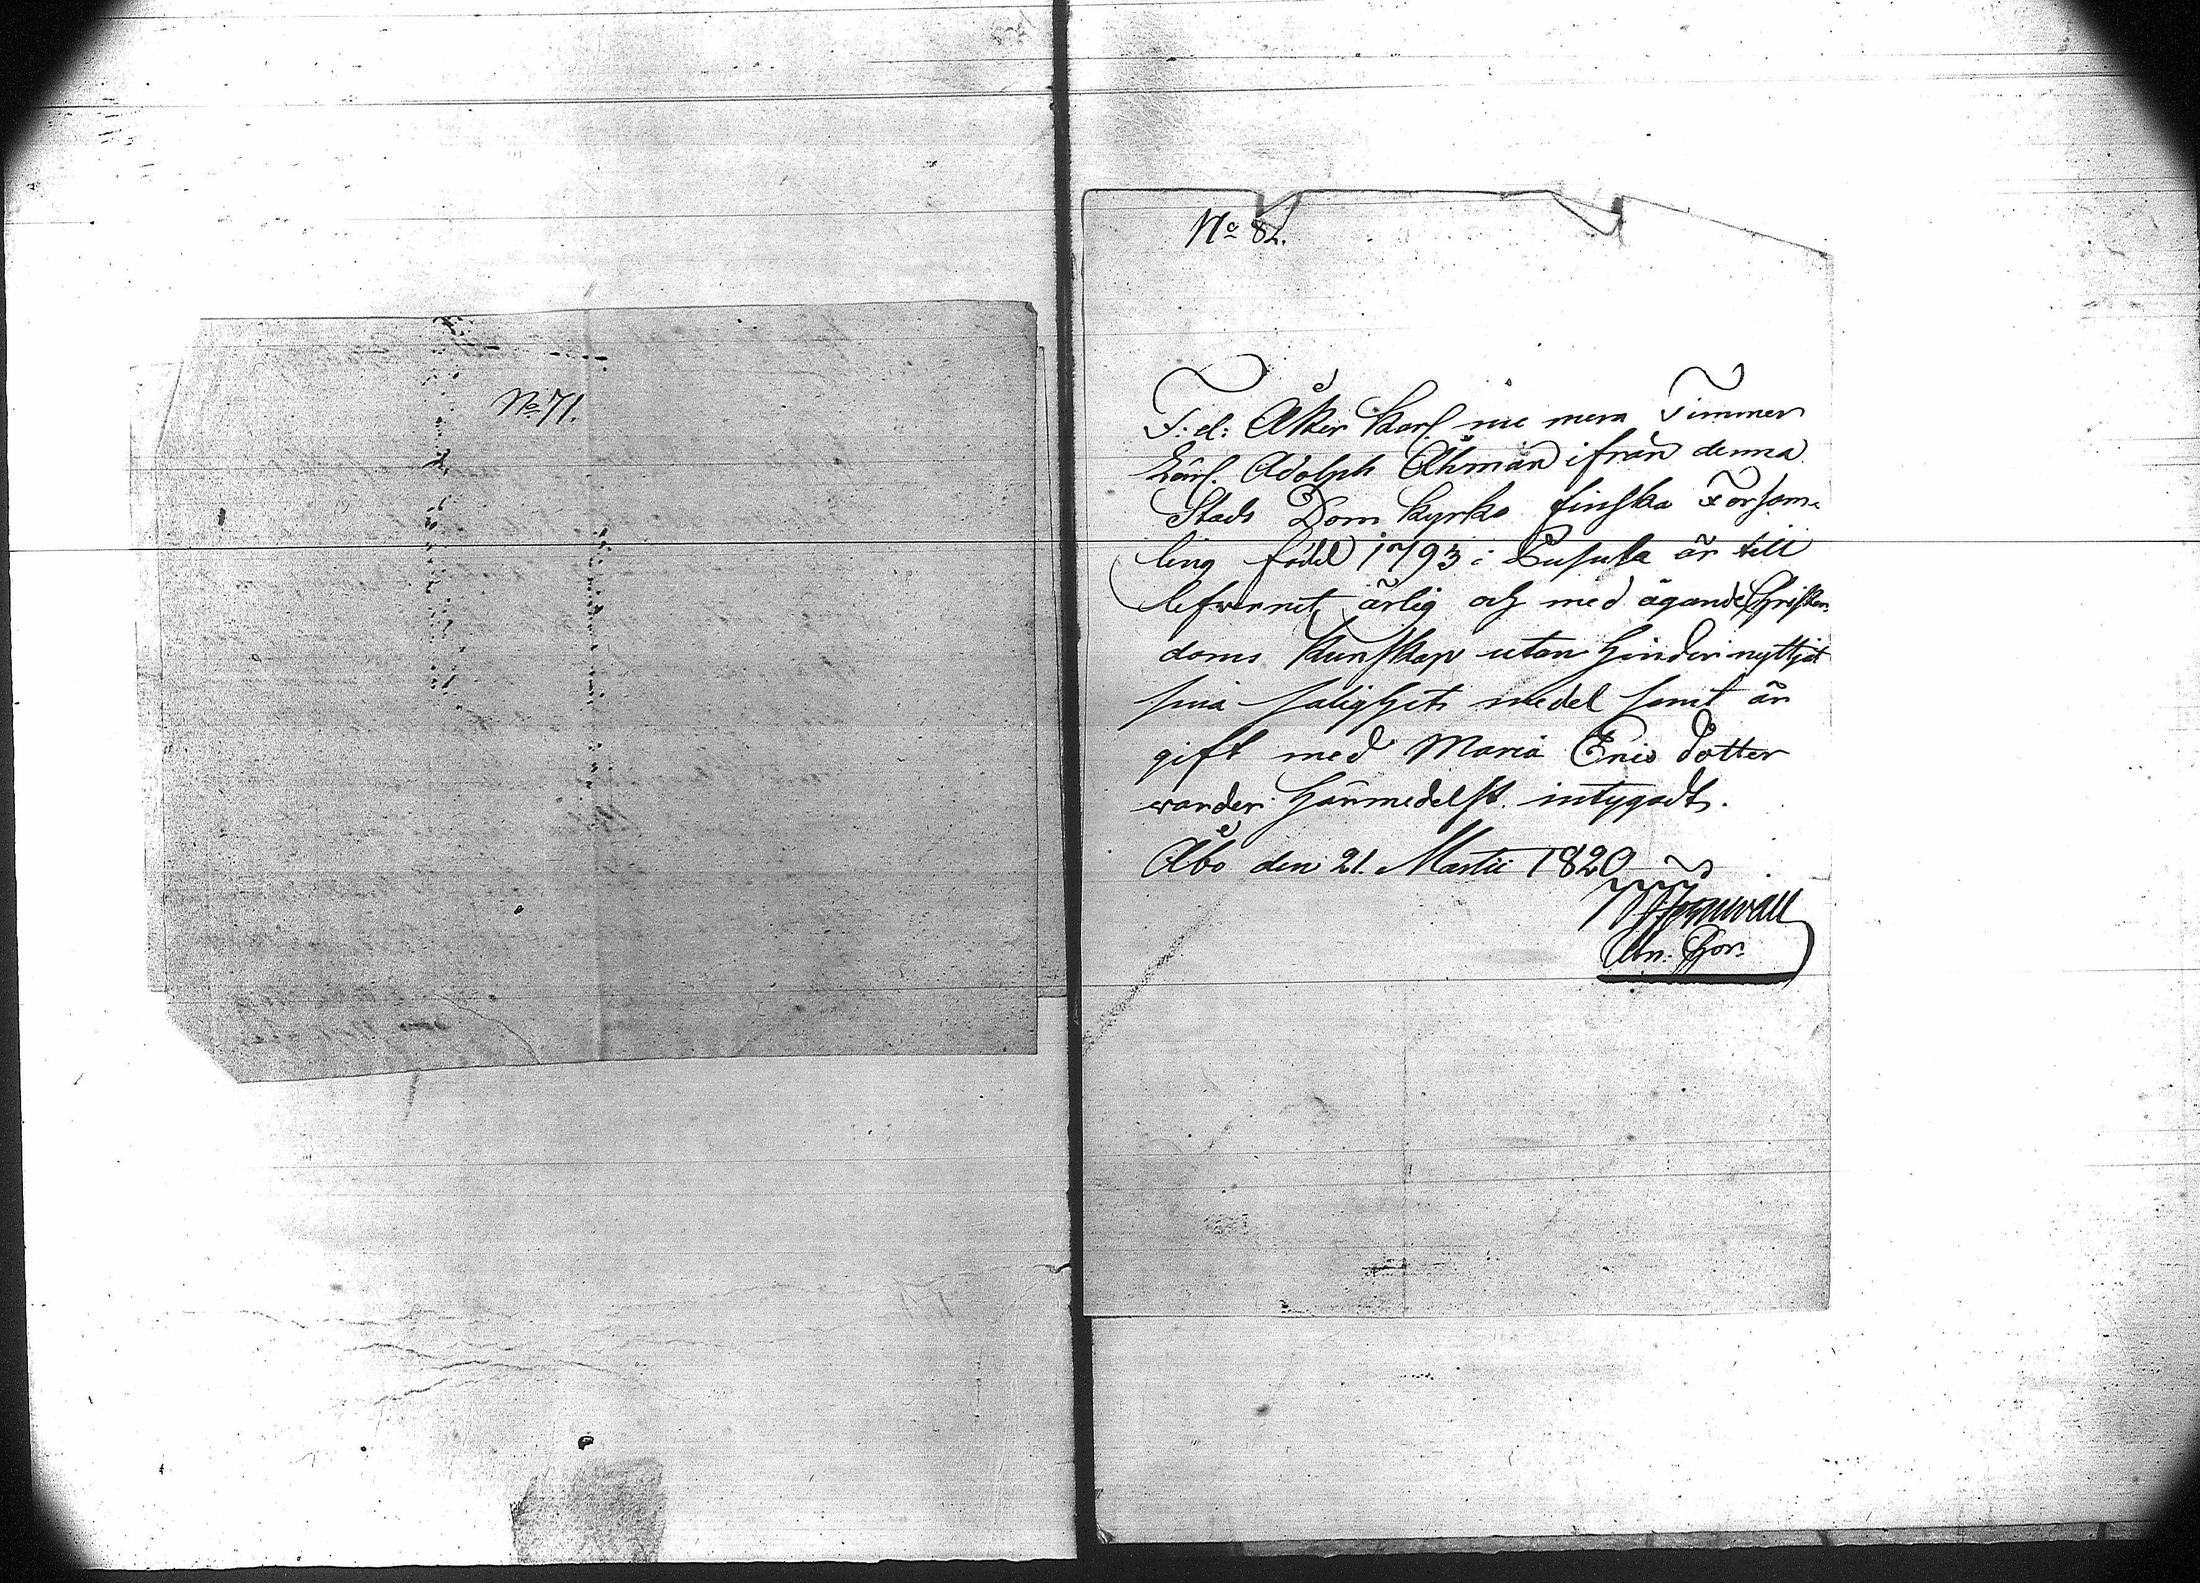 No 71.
No 82.
F: d: Åker karl nu mera Timmer
karl. Adolph Åhman ifrån denna
Stads Dom kyrko finska Församˍ
ling född 1793 i Pusula är till
lefwernet ärlig och med ägande Christenˍ
doms kunskap utan hinder nyttjat
sina salighets medel samt är
gift med Maria Erics dotter
warder härmedelst. intygadt.
Åbo den 21. Martii 1820